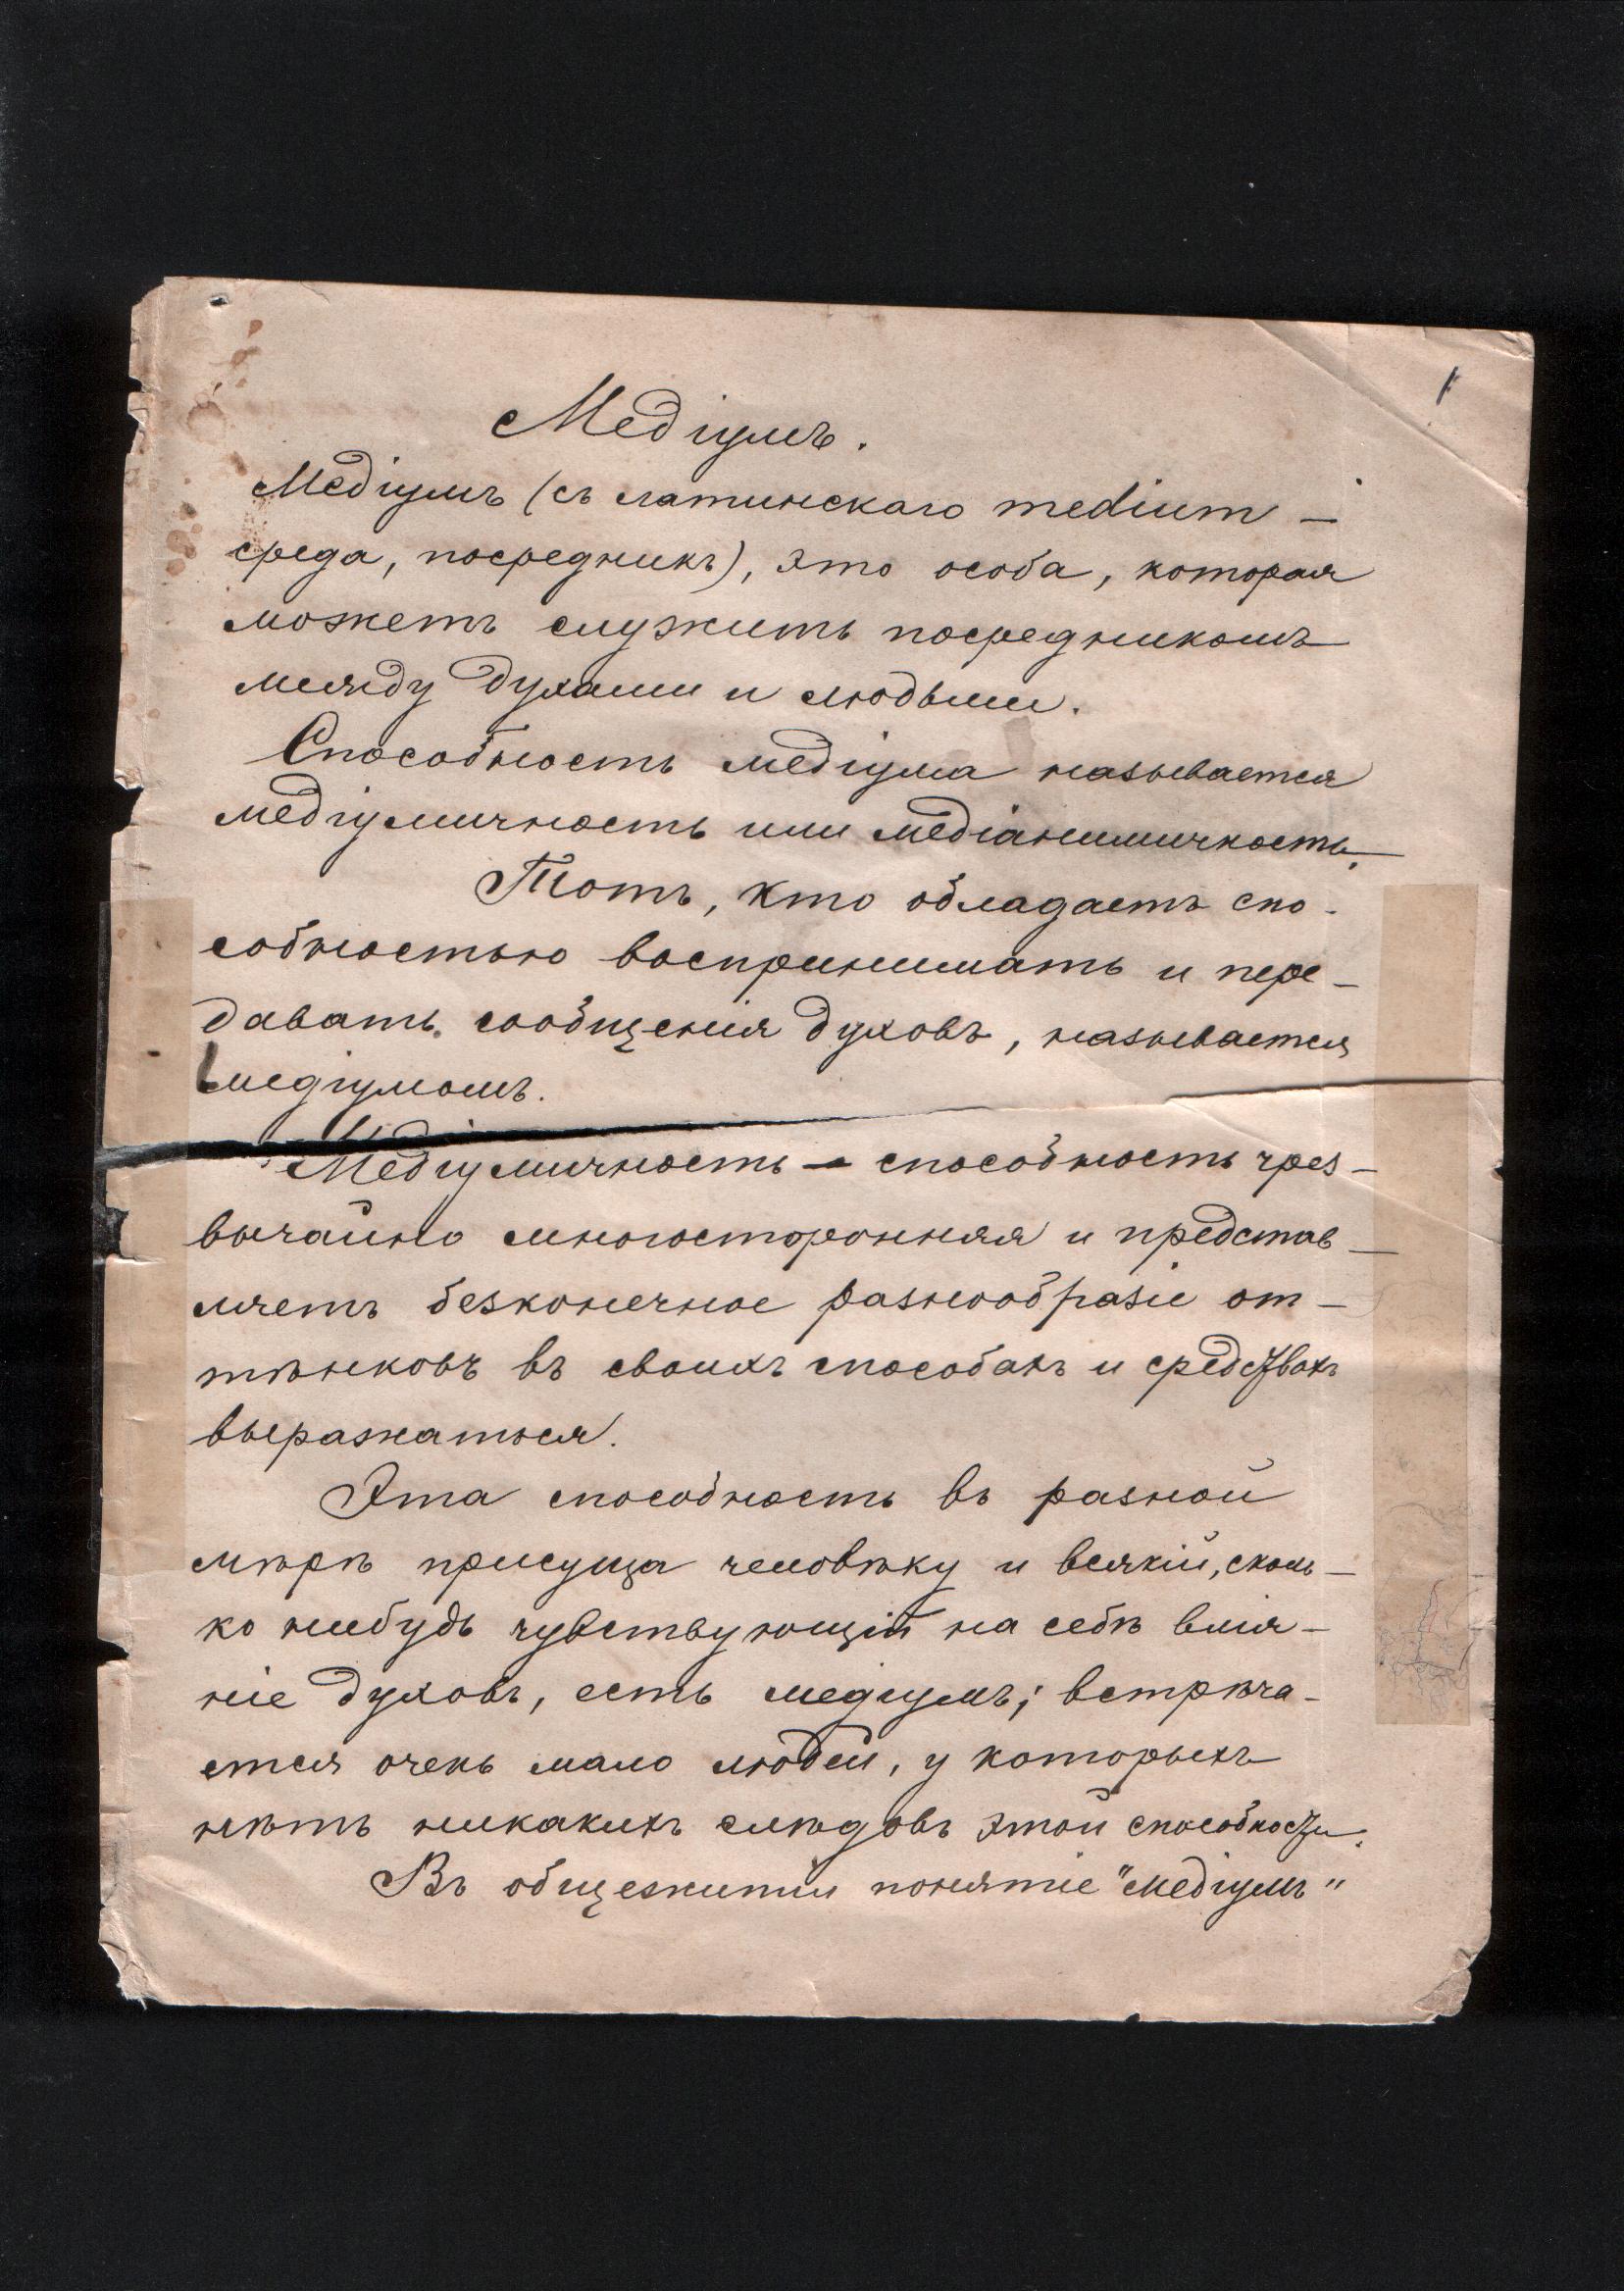 1
Медіумъ.
Медіумъ (съ латинскаго medium —
среда, посредникъ), это особа, которая
можетъ служить посредникомъ
между духами и людьми.
Способность медіума называется
медіумичность или медіанимичность.
Тотъ, кто обладаетъ спо-
собностью воспринимать и пере-
давать сообщенія духовъ, называется
медіумомъ.
Медіумичность — способность чрез-
вычайно многосторонняя и представ-
ляетъ безконечное разнообразіе от-
тѣнковъ въ своихъ способахъ и средствахъ
выражаться.
Эта способность въ разной
мѣрѣ присуща человѣку и всякій, сколь-
ко нибудь чувствующій на себѣ влія-
ніе духовъ, есть медіумъ; встрѣча-
ется очень мало людей, у которыхъ
нѣтъ никакихъ слѣдовъ этой способности.
Въ общежитіи понятіе "медіумъ"